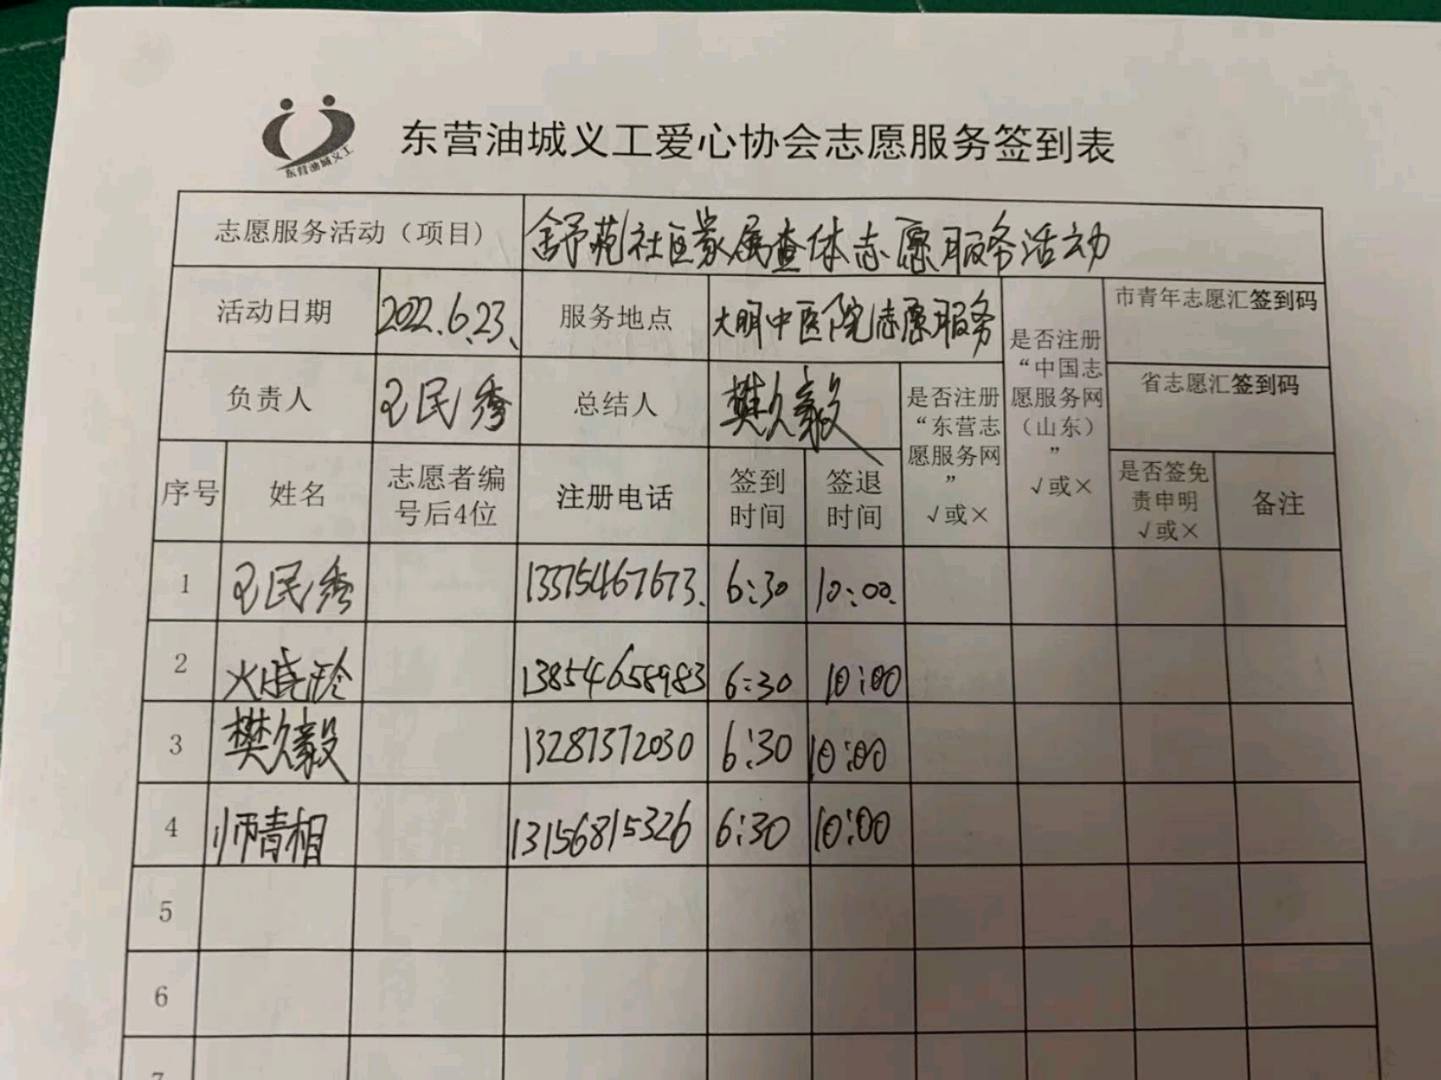 东营油城义工
东营油城义工爱心协会志愿服务签到表
志愿服务活动（项目） 舒苑社区家属查体志愿服务活动
活动日期 2022.6.23、 服务地点 大明中医院志愿服务 是否注册“中国志愿服务网（山东）”√或× 市青年志愿汇签到码
负责人 王民秀 总结人 樊久毅 是否注册“东营志愿服务网”√或× 省志愿汇签到码
序号 姓名 志愿者编号后4位 注册电话 签到时间 签退时间 是否签免责申明√或× 备注
1 王民秀 13375467673、 6:30 10:00.
2 13854658983 6:30 10:00
3 樊久毅 13287372030 6:30 10:00
4 师青相 13156815326 6:30 10:00
5
6
7